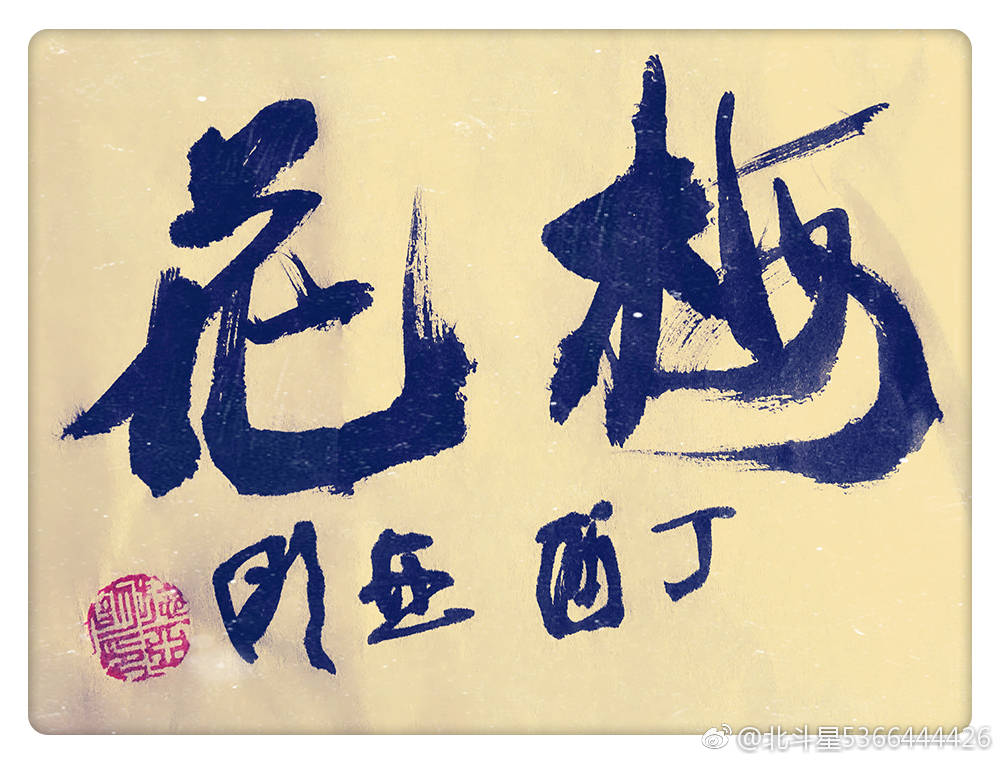 梅花
丁酉 亚明
@北斗星5366444426